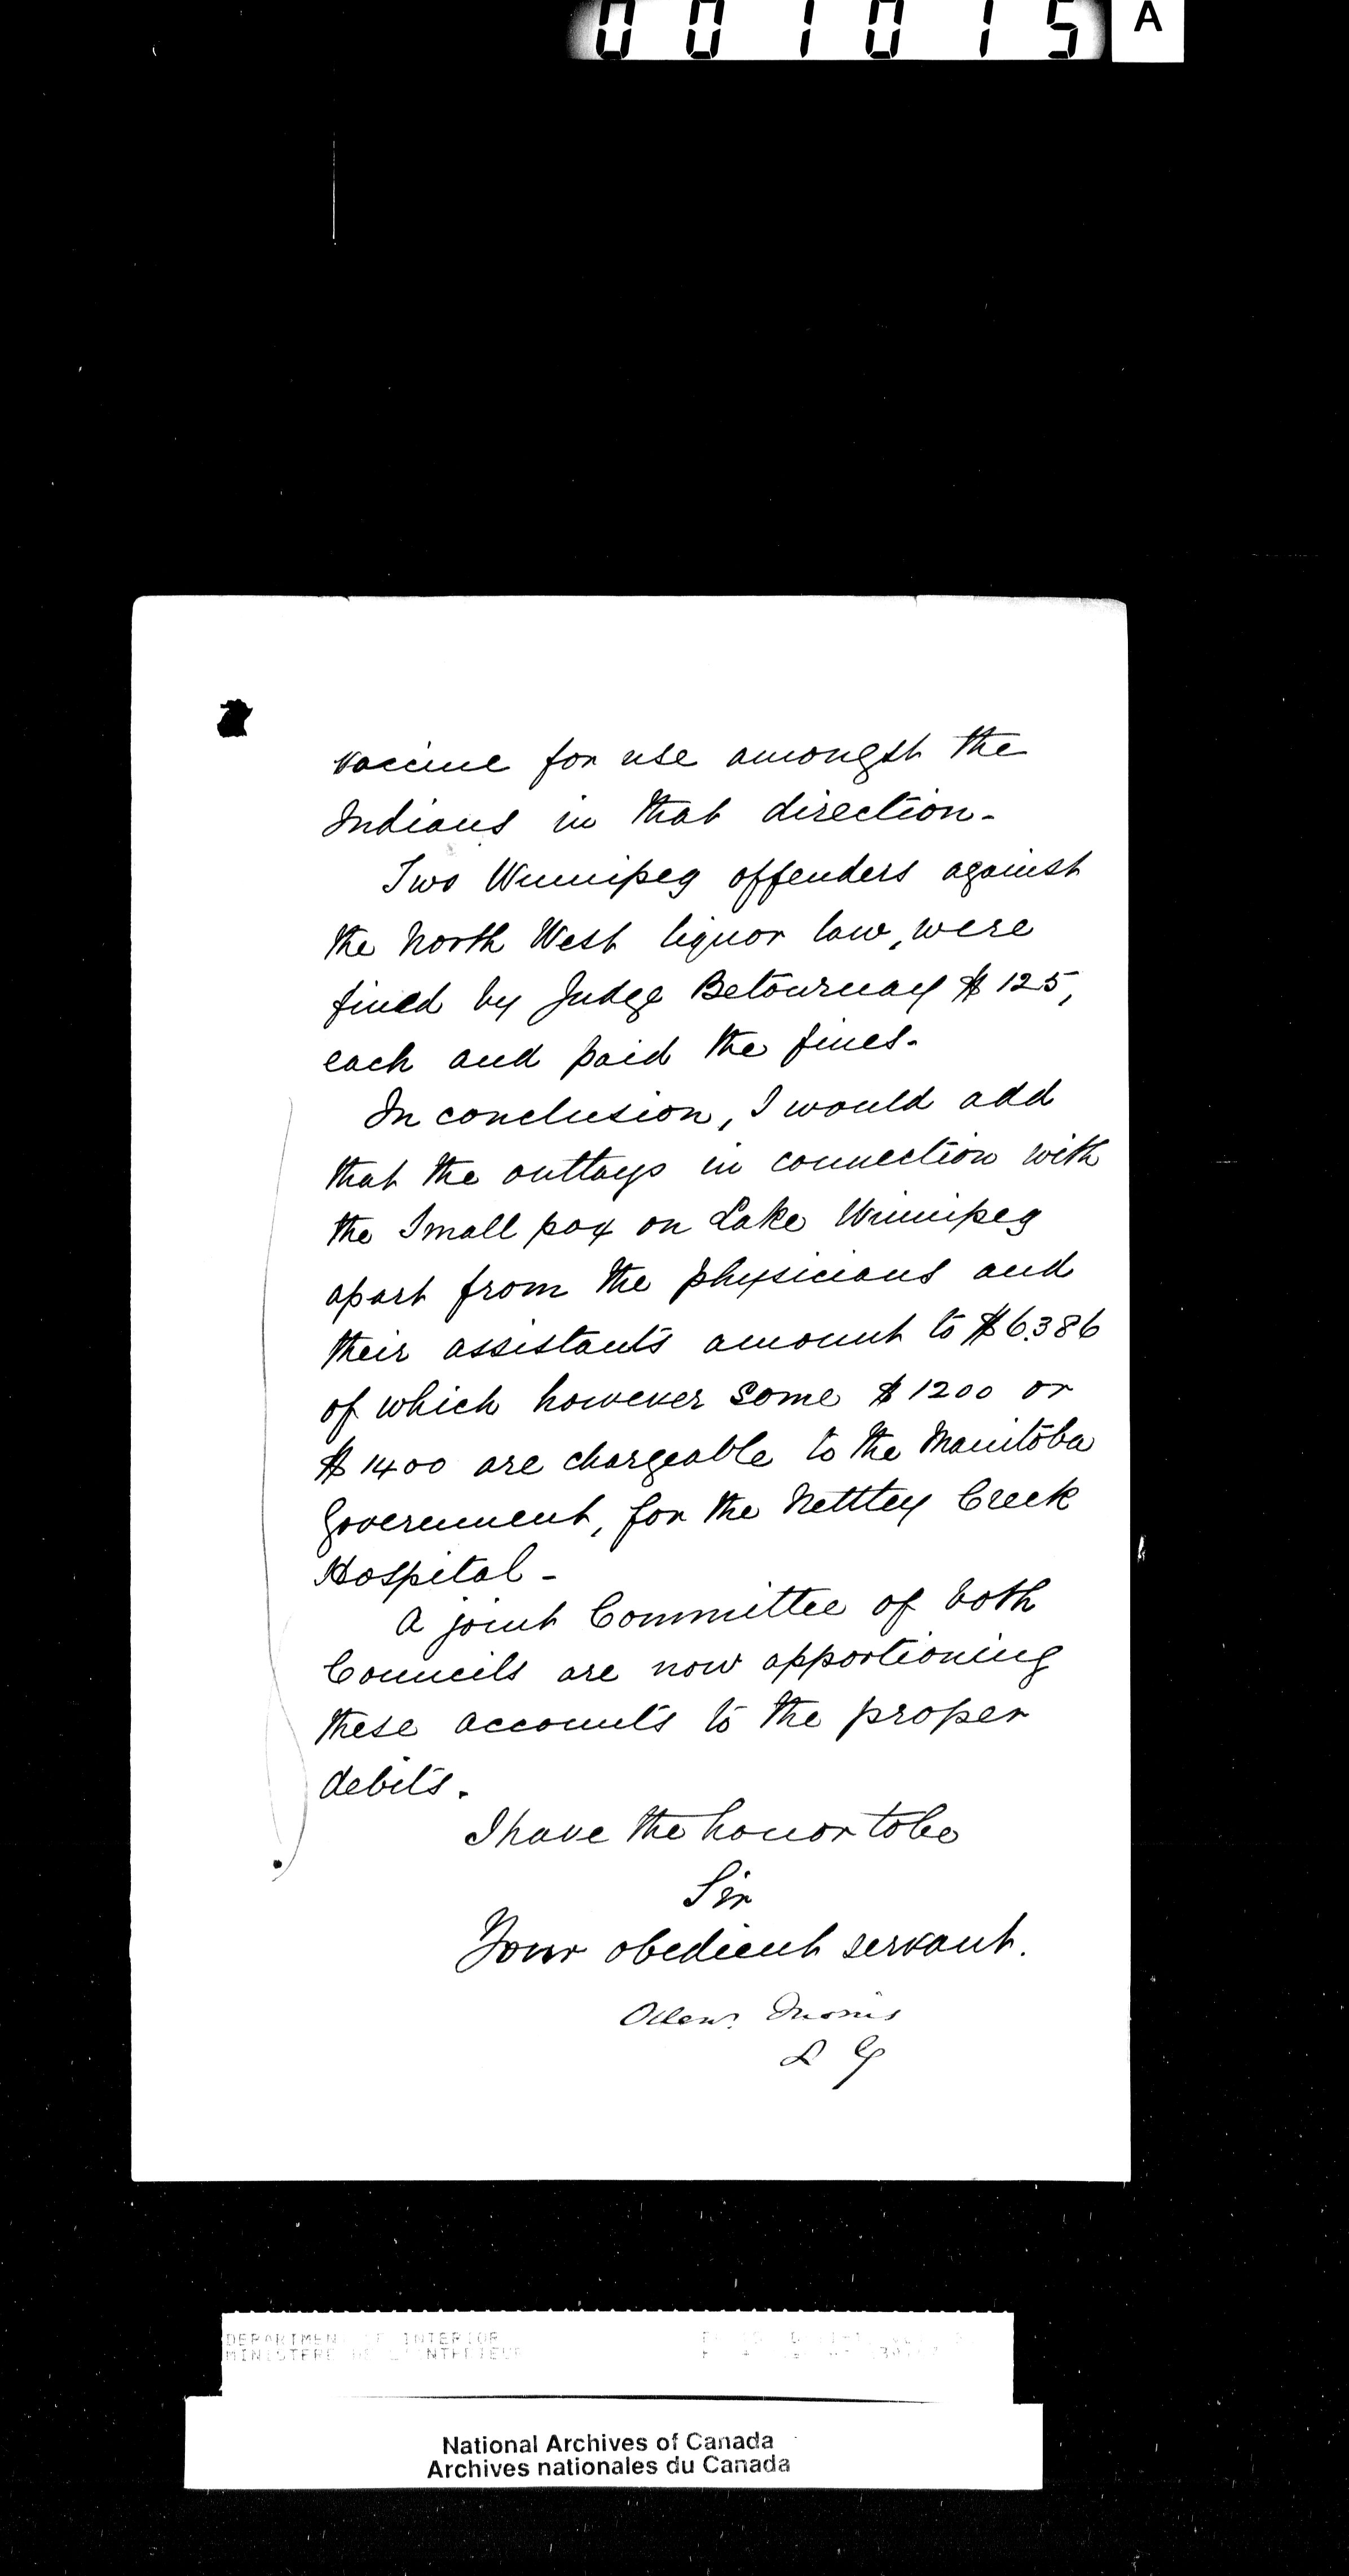 001015 A
vaccine for use amongst the
Indians in that direction-
Two Winnipeg offenders against
the North West liquor law, were
fined by Judge Betournay $125,
each and paid the fines-
In conclusion, I would add
that the outlays in connection with
the Small pox on Lake Winnipeg
apart from the physicians and
their assistants amount to $6386
of which however some $1200 or
$1400 are chargeable to the Manitoba
Government, for the Nettley Creek
Hospital-
A joint Committee of both
Councils are now apportioning
these accounts to the proper
debits.
I have the honor to be
Sir
Your obedient servant.
Alexr. Morris
L G
DEPARTMENT INTERIOR
MINISTERE DE L'INTERIEUR
National Archives of Canada
Archives nationales du Canada